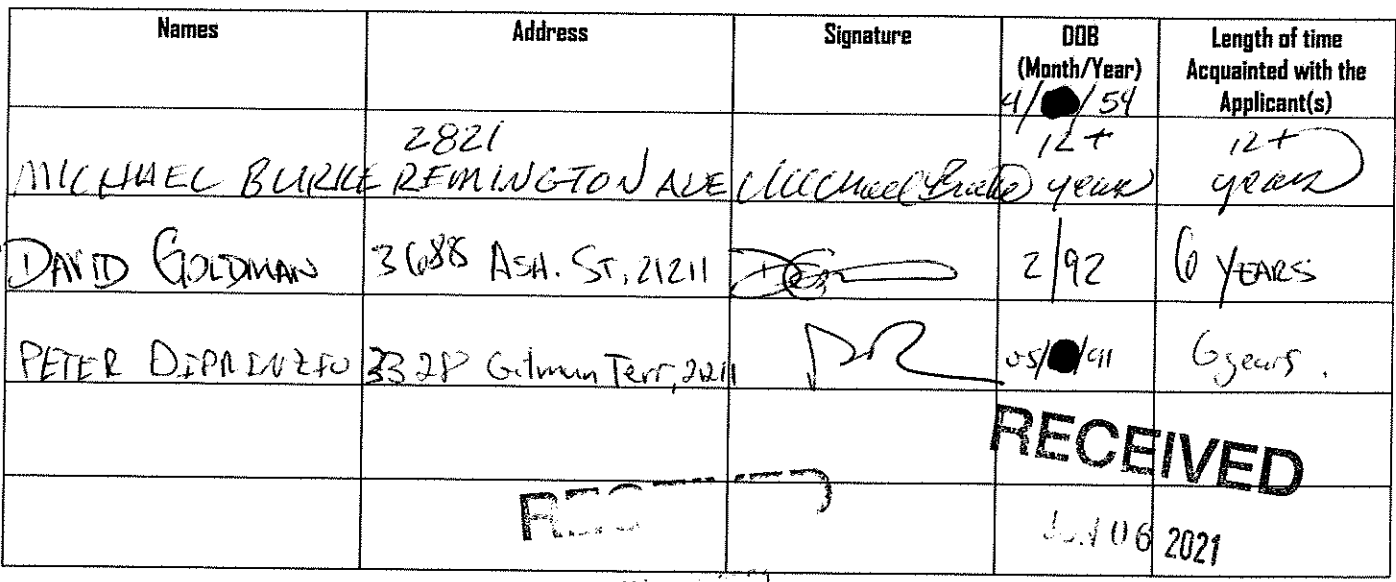 Names Address Signature DOB Length of time
(Month/Year) Acquainted with the
4/ /54 Applicant(s)
2821 12+ 12+
MICHAEL BURKE REMINGTON AVE Michael Burke years years
DAVID GOLDMAN 3688 ASH. ST, 21211 2/92 6 YEARS
PETER DIPRINZIO 3328 Gilman Terr, 21211 05/ /91 6 years.
RECEIVED
REC
06 2021